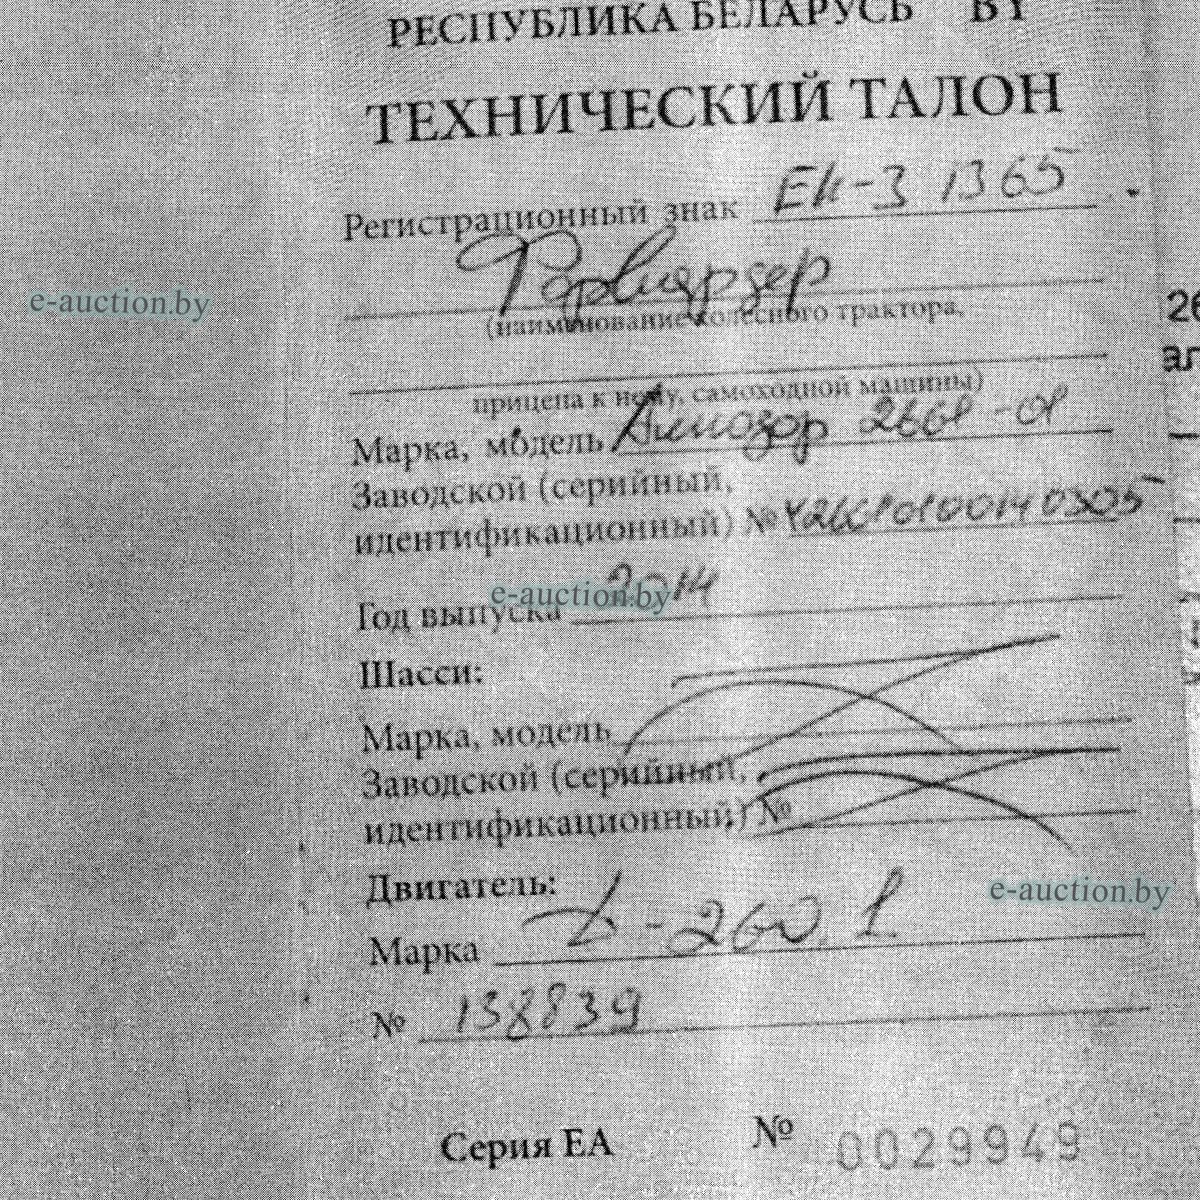 РЕСПУБЛИКА БЕЛАРУСЬ BY
ТЕХНИЧЕСКИЙ ТАЛОН
Регистрационный знак ЕК-3 1365
Форвардер
e-auction.by
(наименование колесного трактора,
прицепа к нему, самоходной машины)
Марка, модель Амкодор 2661-01
Заводской (серийный,
идентификационный) №
Год выпуска 2014
e-auction.by
Шасси:
Марка, модель
Заводской (серийный,
идентификационный) №
Двигатель:
e-auction.by
Марка Д-260.1
№ 138839
Серия ЕА № 0029949